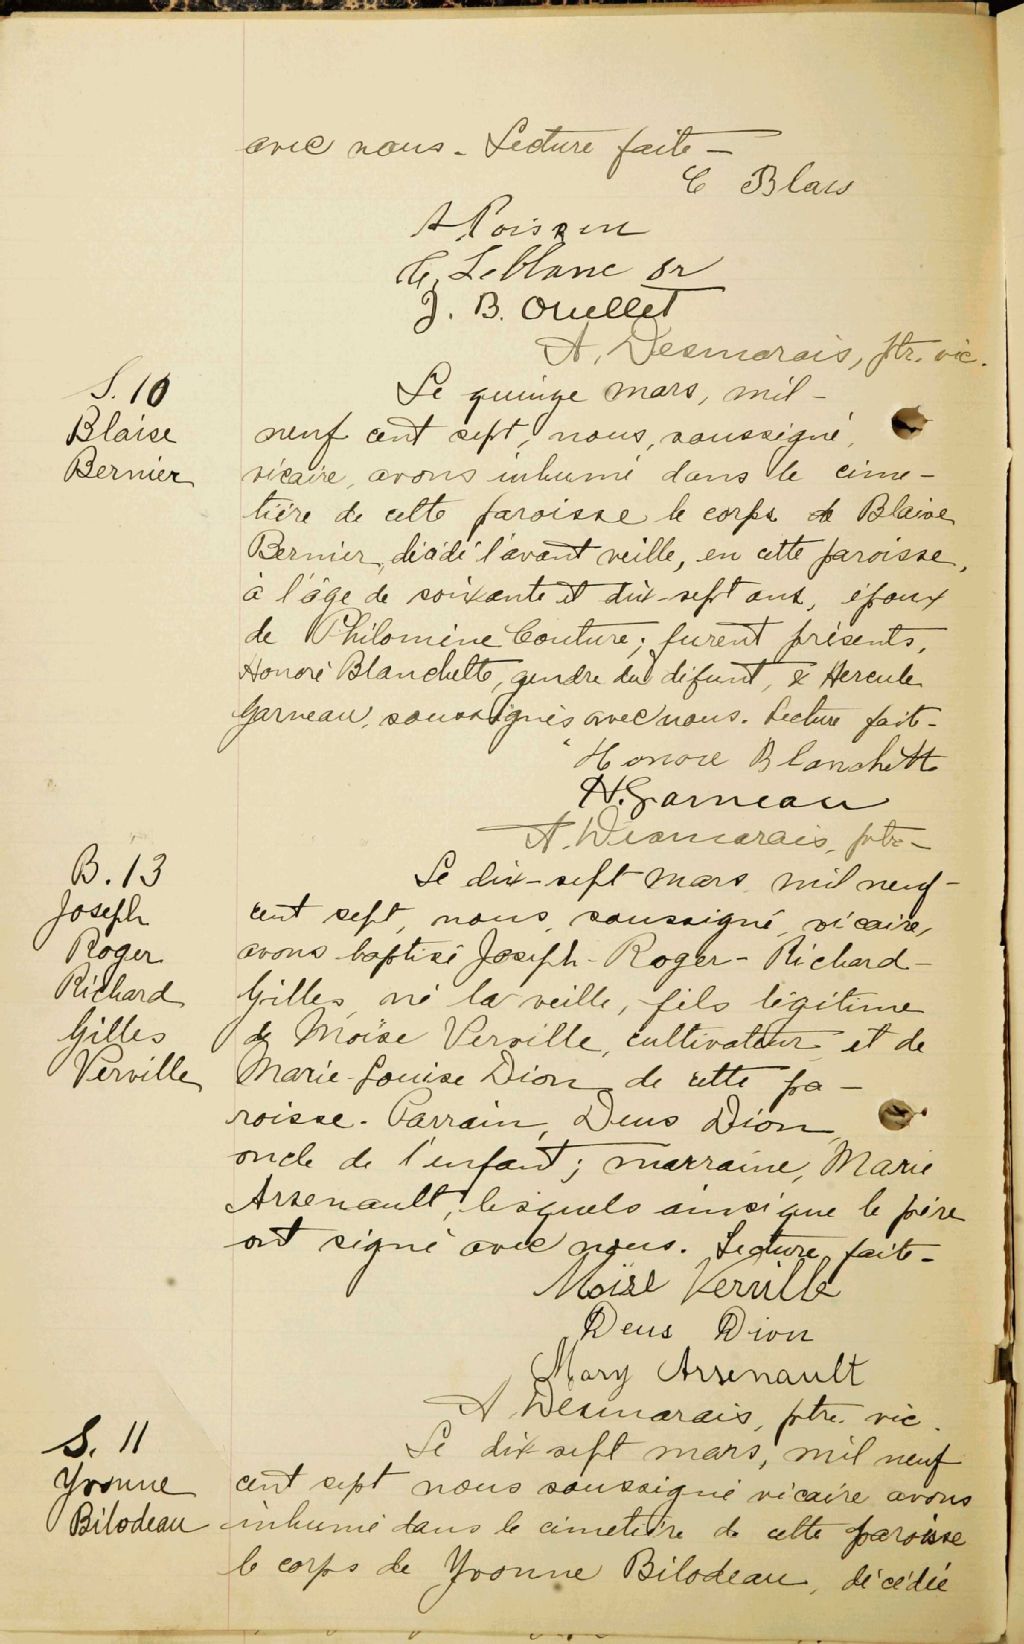 avec nous - Lecture faite -
C Blais
A Poisson
C. Leblanc sr
J. B. Ouellet
A. Desmarais, ptr. vic.
S. 10
Blaise
Bernier
Le quinze mars, mil -
neuf cent sept, nous, soussigné,
vicaire, avons inhumé dans le cime-
tière de cette paroisse le corps de Blaise
Bernier, décédé l'avant veille, en cette paroisse,
à l'âge de soixante et dix-sept ans, époux
de Philomène Couture; furent présents,
Honoré Blanchette, gendre du défunt, & Hercule
Garneau, soussignés avec nous. Lecture faite -
Honore Blanchette
H. Garneau
A. Desmarais, ptre -
B. 13
Joseph
Roger
Richard
Gilles
Verville
Le dix-sept mars mil neuf -
cent sept, nous, soussigné, vicaire,
avons baptisé Joseph - Roger - Richard -
Gilles, né la veille, fils légitime
de Moïse Verville, cultivateur et de
Marie-Louise Dion de cette pa -
roisse. Parrain, Deus Dion,
oncle de l'enfant; marraine, Marie
Arsenault, lesquels ainsi que le père
ont signé avec nous. Lecture faite -
Moïse Verville
Deus Dion
Mary Arsenault
A Desmarais, ptre. vic.
S. 11
Yvonne
Bilodeau
Le dix sept mars, mil neuf
cent sept nous soussigné vicaire avons
inhumé dans le cimetière de cette paroisse
le corps de Yvonne Bilodeau, décédée